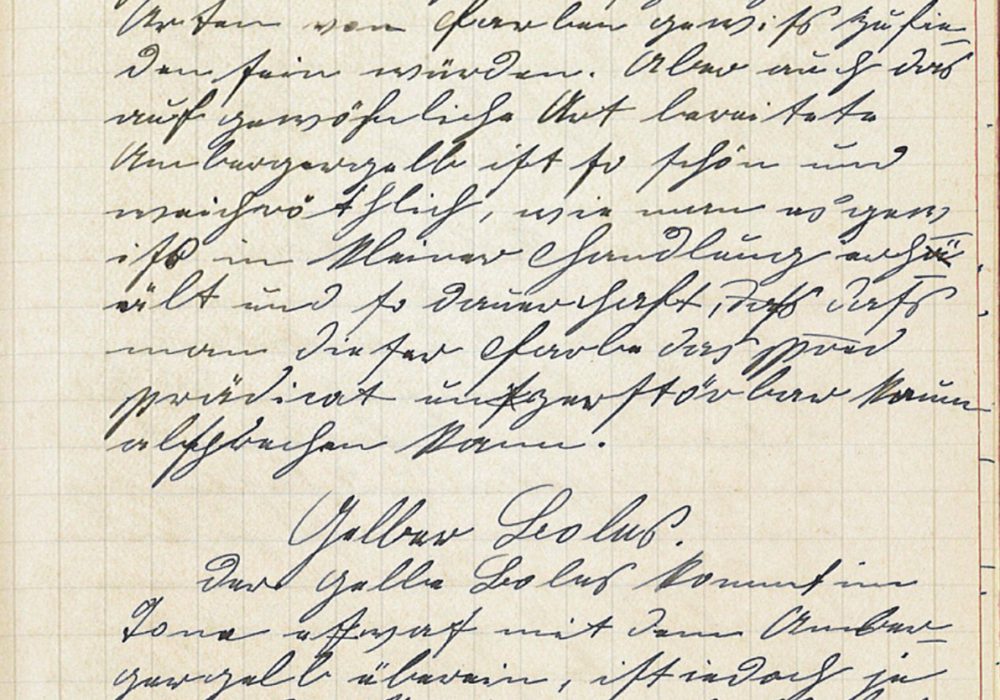 Arten von Farben gewiss zu fin
den sein würden. Aber auch das
auf gewöhnliche Art bereitete
Ambergergelb ist so schön und
weichröthlich, wie man es gew
iss in kleiner Handlung erhä
ält und so dauerhaft, dass dass
man dieser Farbe das präd
prädicat unzerstörbar kaum
absprechen kann.
Gelber Bolus.
Der gelbe Bolus kommt im
Tone etwas mit dem Amber-
gergelb überein, ist jedoch je